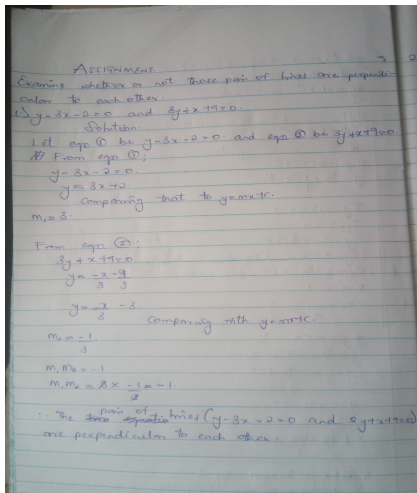 ASSIGNMENT
Examine whether or not those pair of lines are perpendi-
cular to each other.
1) y-3x-2=0 and 3y+x+9=0.
Solution
Let eqn ① be y-3x-2=0 and eqn ② be 3y+x+9=0.
From eqn ①;
y-3x-2=0.
y=3x+2.
Comparing that to y=mx+c.
m₁=3.
From eqn ②;
3y+x+9=0
y=-x/3-9/3
y=-x/3-3
Comparing with y=mx+c.
m₂=-1/3
m₁m₂=-1
m₁m₂=3×-1/3=-1.
∴ The pair of lines (y-3x-2=0 and 3y+x+9=0)
are perpendicular to each other.